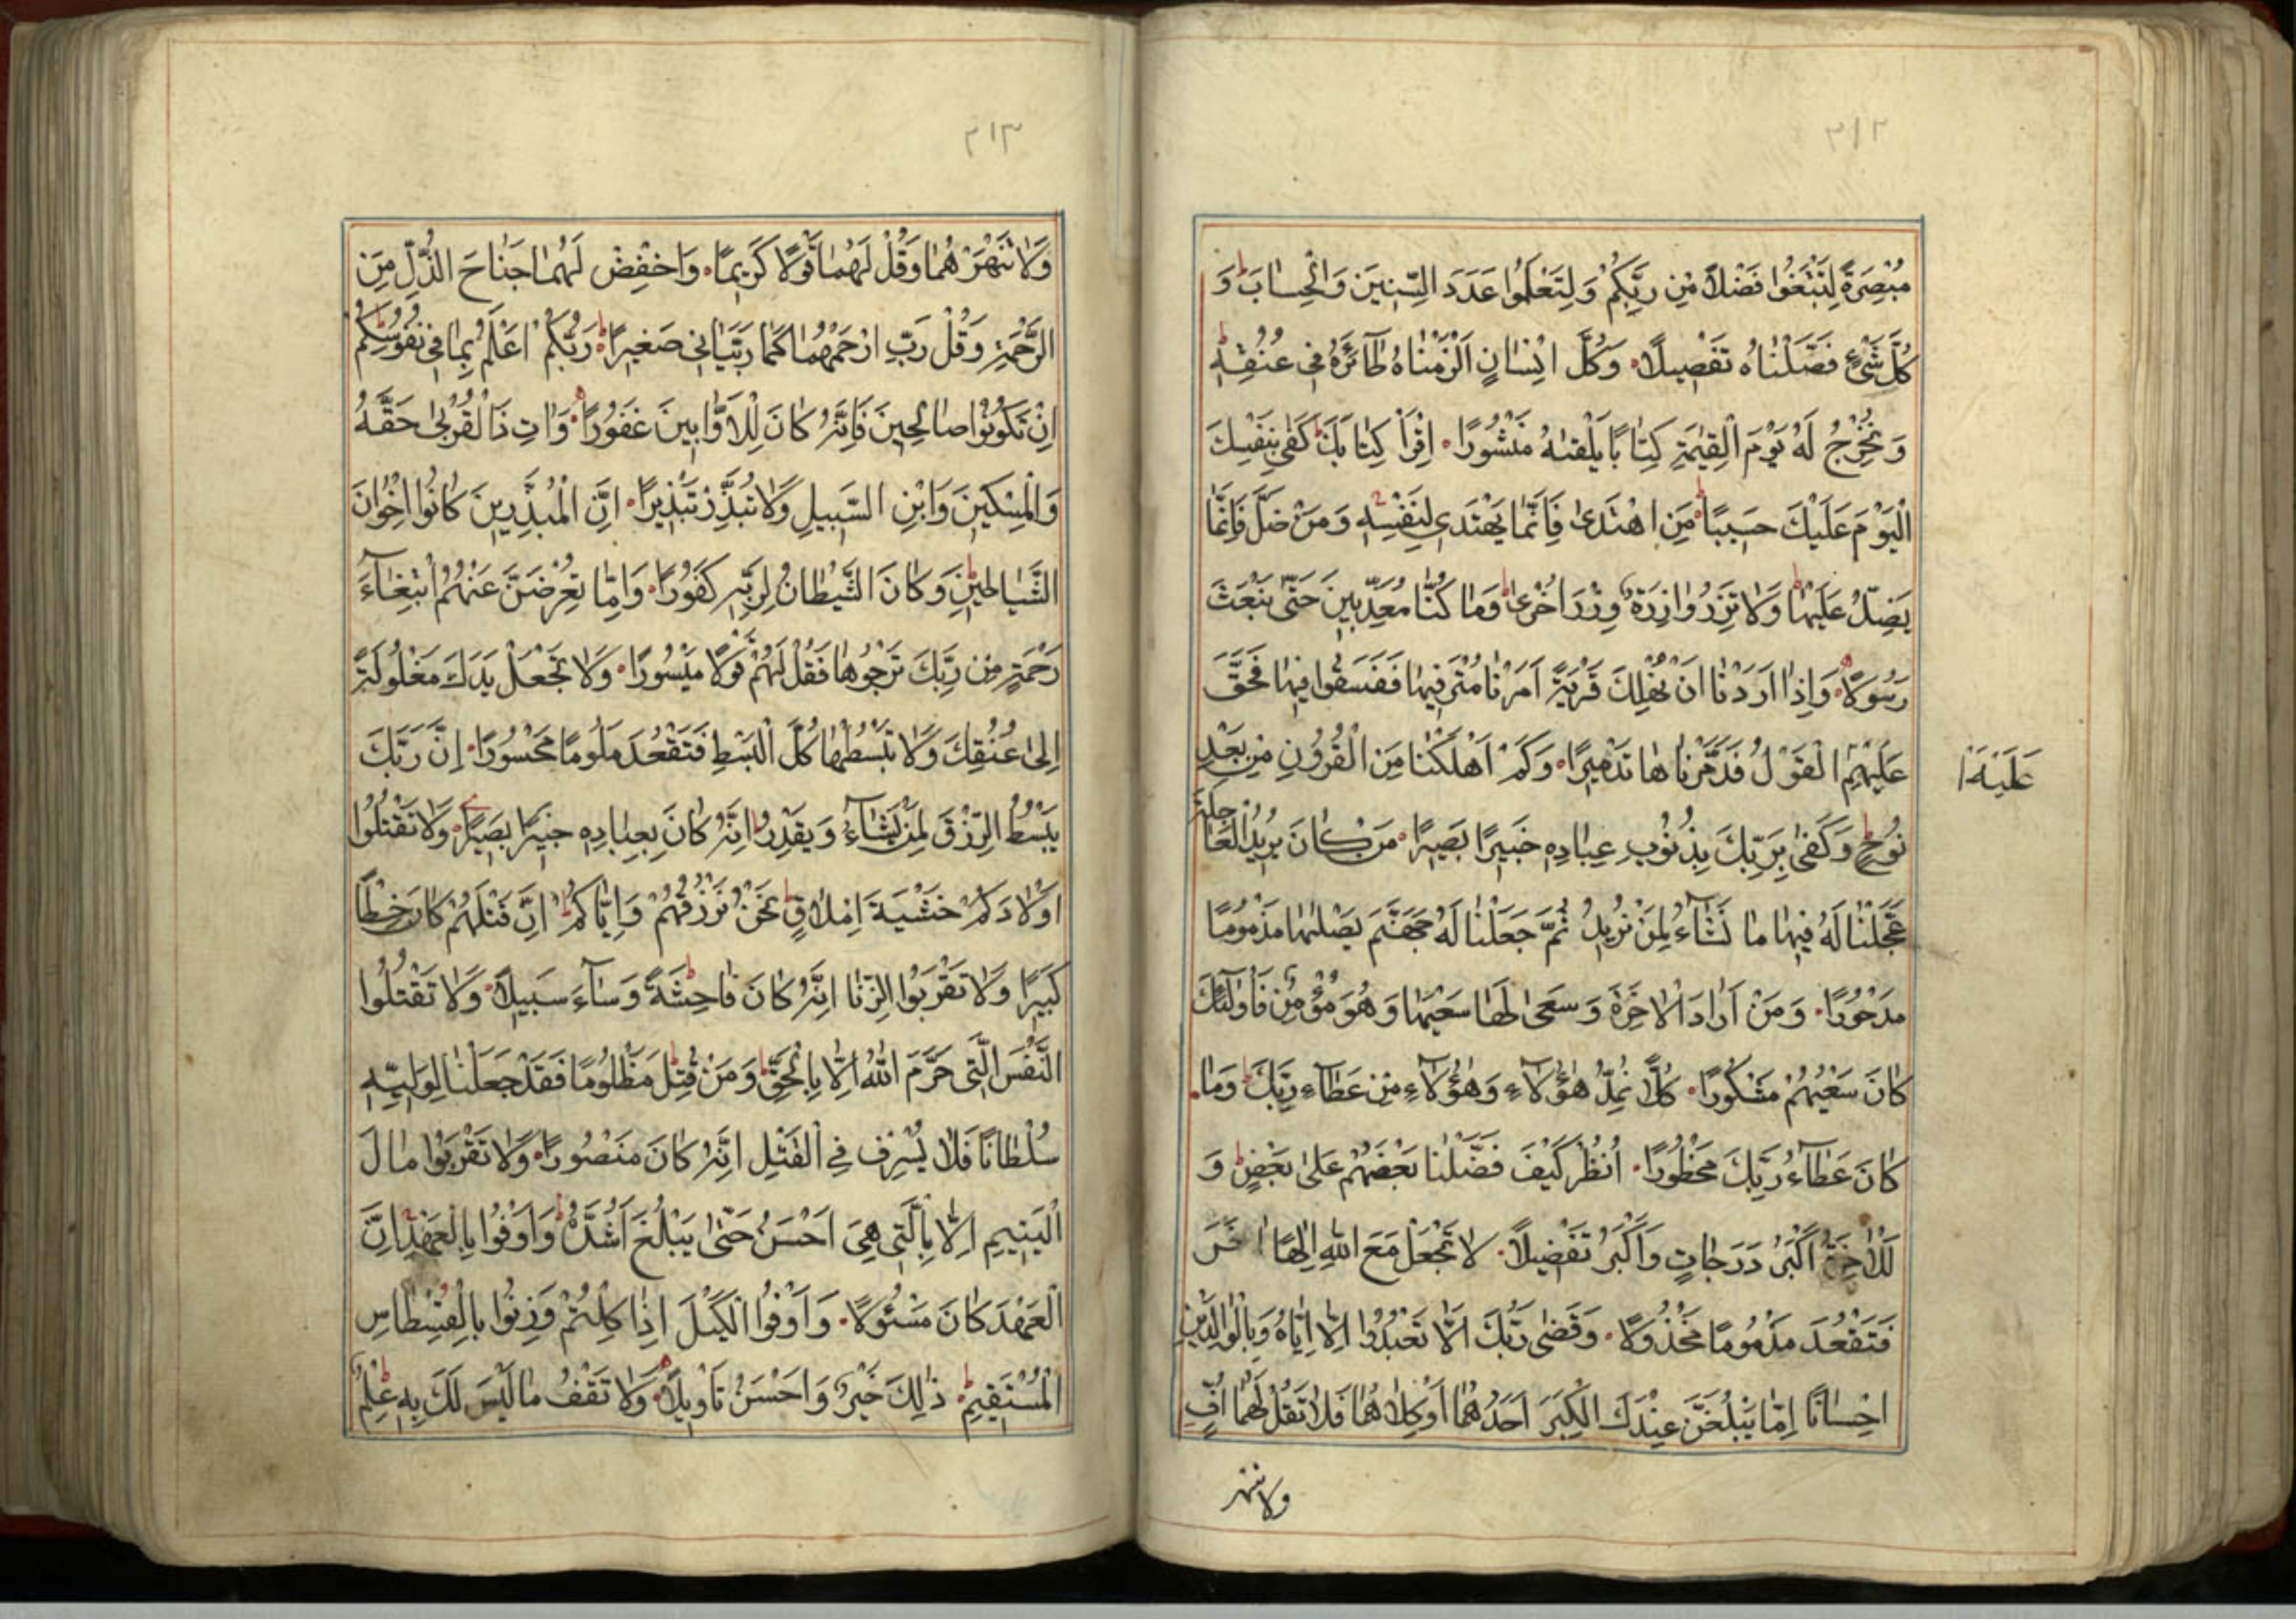 ٢١٢
مُبْصِرَةً لِتَبْتَغُوا فَضْلًا مِنْ رَبِّكُمْ وَلِتَعْلَمُوا عَدَدَ السِّنِينَ وَالْحِسَابَ ط وَ
كُلَّ شَيْءٍ فَصَّلْنَاهُ تَفْصِيلًا وَكُلَّ اِنْسَانٍ اَلْزَمْنَاهُ طَآئِرَهُ فِي عُنُقِهِ ط
وَنُخْرِجُ لَهُ يَوْمَ الْقِيٰمَةِ كِتَابًا يَلْقٰىهُ مَنْشُورًا اِقْرَاْ كِتَابَكَ ط كَفٰى بِنَفْسِكَ
الْيَوْمَ عَلَيْكَ حَسِيبًا ط مَنِ اهْتَدٰى فَاِنَّمَا يَهْتَدِي لِنَفْسِهِ وَمَنْ ضَلَّ فَاِنَّمَا
يَضِلُّ عَلَيْهَا ط وَلَا تَزِرُ وَازِرَةٌ وِزْرَ اُخْرٰى ط وَمَا كُنَّا مُعَذِّبِينَ حَتّٰى نَبْعَثَ
رَسُولًا وَاِذَا اَرَدْنَا اَنْ نُهْلِكَ قَرْيَةً اَمَرْنَا مُتْرَفِيهَا فَفَسَقُوا فِيهَا فَحَقَّ
عَلَيْهِمُ الْقَوْلُ فَدَمَّرْنَاهَا تَدْمِيرًا وَكَمْ اَهْلَكْنَا مِنَ الْقُرُونِ مِنْ بَعْدِ
عَلَيْهَا
نُوحٍ ط وَكَفٰى بِرَبِّكَ بِذُنُوبِ عِبَادِهِ خَبِيرًا بَصِيرًا مَنْ كَانَ يُرِيدُ الْعَاجِلَةَ
عَجَّلْنَا لَهُ فِيهَا مَا نَشَآءُ لِمَنْ نُرِيدُ ثُمَّ جَعَلْنَا لَهُ جَهَنَّمَ يَصْلٰيهَا مَذْمُومًا
مَدْحُورًا وَمَنْ اَرَادَ الْاٰخِرَةَ وَسَعٰى لَهَا سَعْيَهَا وَهُوَ مُؤْمِنٌ فَاُولٰٓئِكَ
كَانَ سَعْيُهُمْ مَشْكُورًا كُلًّا نُمِدُّ هٰٓؤُلَآءِ وَهٰٓؤُلَآءِ مِنْ عَطَآءِ رَبِّكَ ط وَمَا
كَانَ عَطَآءُ رَبِّكَ مَحْظُورًا اُنْظُرْ كَيْفَ فَضَّلْنَا بَعْضَهُمْ عَلٰى بَعْضٍ ط وَ
لَلْاٰخِرَةُ اَكْبَرُ دَرَجَاتٍ وَاَكْبَرُ تَفْضِيلًا لَا تَجْعَلْ مَعَ اللّٰهِ اِلٰهًا اٰخَرَ
فَتَقْعُدَ مَذْمُومًا مَخْذُولًا وَقَضٰى رَبُّكَ اَلَّا تَعْبُدُوا اِلَّا اِيَّاهُ وَبِالْوَالِدَيْنِ
اِحْسَانًا اِمَّا يَبْلُغَنَّ عِنْدَكَ الْكِبَرَ اَحَدُهُمَا اَوْ كِلَاهُمَا فَلَا تَقُلْ لَهُمَا اُفٍّ
ولا تنهر
٢١٣
وَلَا تَنْهَرْهُمَا وَقُلْ لَهُمَا قَوْلًا كَرِيمًا وَاخْفِضْ لَهُمَا جَنَاحَ الذُّلِّ مِنَ
الرَّحْمَةِ وَقُلْ رَبِّ ارْحَمْهُمَا كَمَا رَبَّيَانِي صَغِيرًا ط رَبُّكُمْ اَعْلَمُ بِمَا فِي نُفُوسِكُمْ ط
اِنْ تَكُونُوا صَالِحِينَ فَاِنَّهُ كَانَ لِلْاَوَّابِينَ غَفُورًا وَاٰتِ ذَا الْقُرْبٰى حَقَّهُ
وَالْمِسْكِينَ وَابْنَ السَّبِيلِ وَلَا تُبَذِّرْ تَبْذِيرًا اِنَّ الْمُبَذِّرِينَ كَانُوا اِخْوَانَ
الشَّيَاطِينِ ط وَكَانَ الشَّيْطَانُ لِرَبِّهِ كَفُورًا وَاِمَّا تُعْرِضَنَّ عَنْهُمُ ابْتِغَآءَ
رَحْمَةٍ مِنْ رَبِّكَ تَرْجُوهَا فَقُلْ لَهُمْ قَوْلًا مَيْسُورًا وَلَا تَجْعَلْ يَدَكَ مَغْلُولَةً
اِلٰى عُنُقِكَ وَلَا تَبْسُطْهَا كُلَّ الْبَسْطِ فَتَقْعُدَ مَلُومًا مَحْسُورًا اِنَّ رَبَّكَ
يَبْسُطُ الرِّزْقَ لِمَنْ يَشَآءُ وَيَقْدِرُ ط اِنَّهُ كَانَ بِعِبَادِهِ خَبِيرًا بَصِيرًا وَلَا تَقْتُلُوا
اَوْلَادَكُمْ خَشْيَةَ اِمْلَاقٍ ط نَحْنُ نَرْزُقُهُمْ وَاِيَّاكُمْ ط اِنَّ قَتْلَهُمْ كَانَ خِطْاً
كَبِيرًا وَلَا تَقْرَبُوا الزِّنَا اِنَّهُ كَانَ فَاحِشَةً ط وَسَآءَ سَبِيلًا وَلَا تَقْتُلُوا
النَّفْسَ الَّتِي حَرَّمَ اللّٰهُ اِلَّا بِالْحَقِّ ط وَمَنْ قُتِلَ مَظْلُومًا فَقَدْ جَعَلْنَا لِوَلِيِّهِ
سُلْطَانًا فَلَا يُسْرِفْ فِي الْقَتْلِ اِنَّهُ كَانَ مَنْصُورًا وَلَا تَقْرَبُوا مَالَ
الْيَتِيمِ اِلَّا بِالَّتِي هِيَ اَحْسَنُ حَتّٰى يَبْلُغَ اَشُدَّهُ ط وَاَوْفُوا بِالْعَهْدِ اِنَّ
الْعَهْدَ كَانَ مَسْئُولًا وَاَوْفُوا الْكَيْلَ اِذَا كِلْتُمْ وَزِنُوا بِالْقِسْطَاسِ
الْمُسْتَقِيمِ ط ذٰلِكَ خَيْرٌ وَاَحْسَنُ تَاْوِيلًا وَلَا تَقْفُ مَا لَيْسَ لَكَ بِهِ عِلْمٌ ط